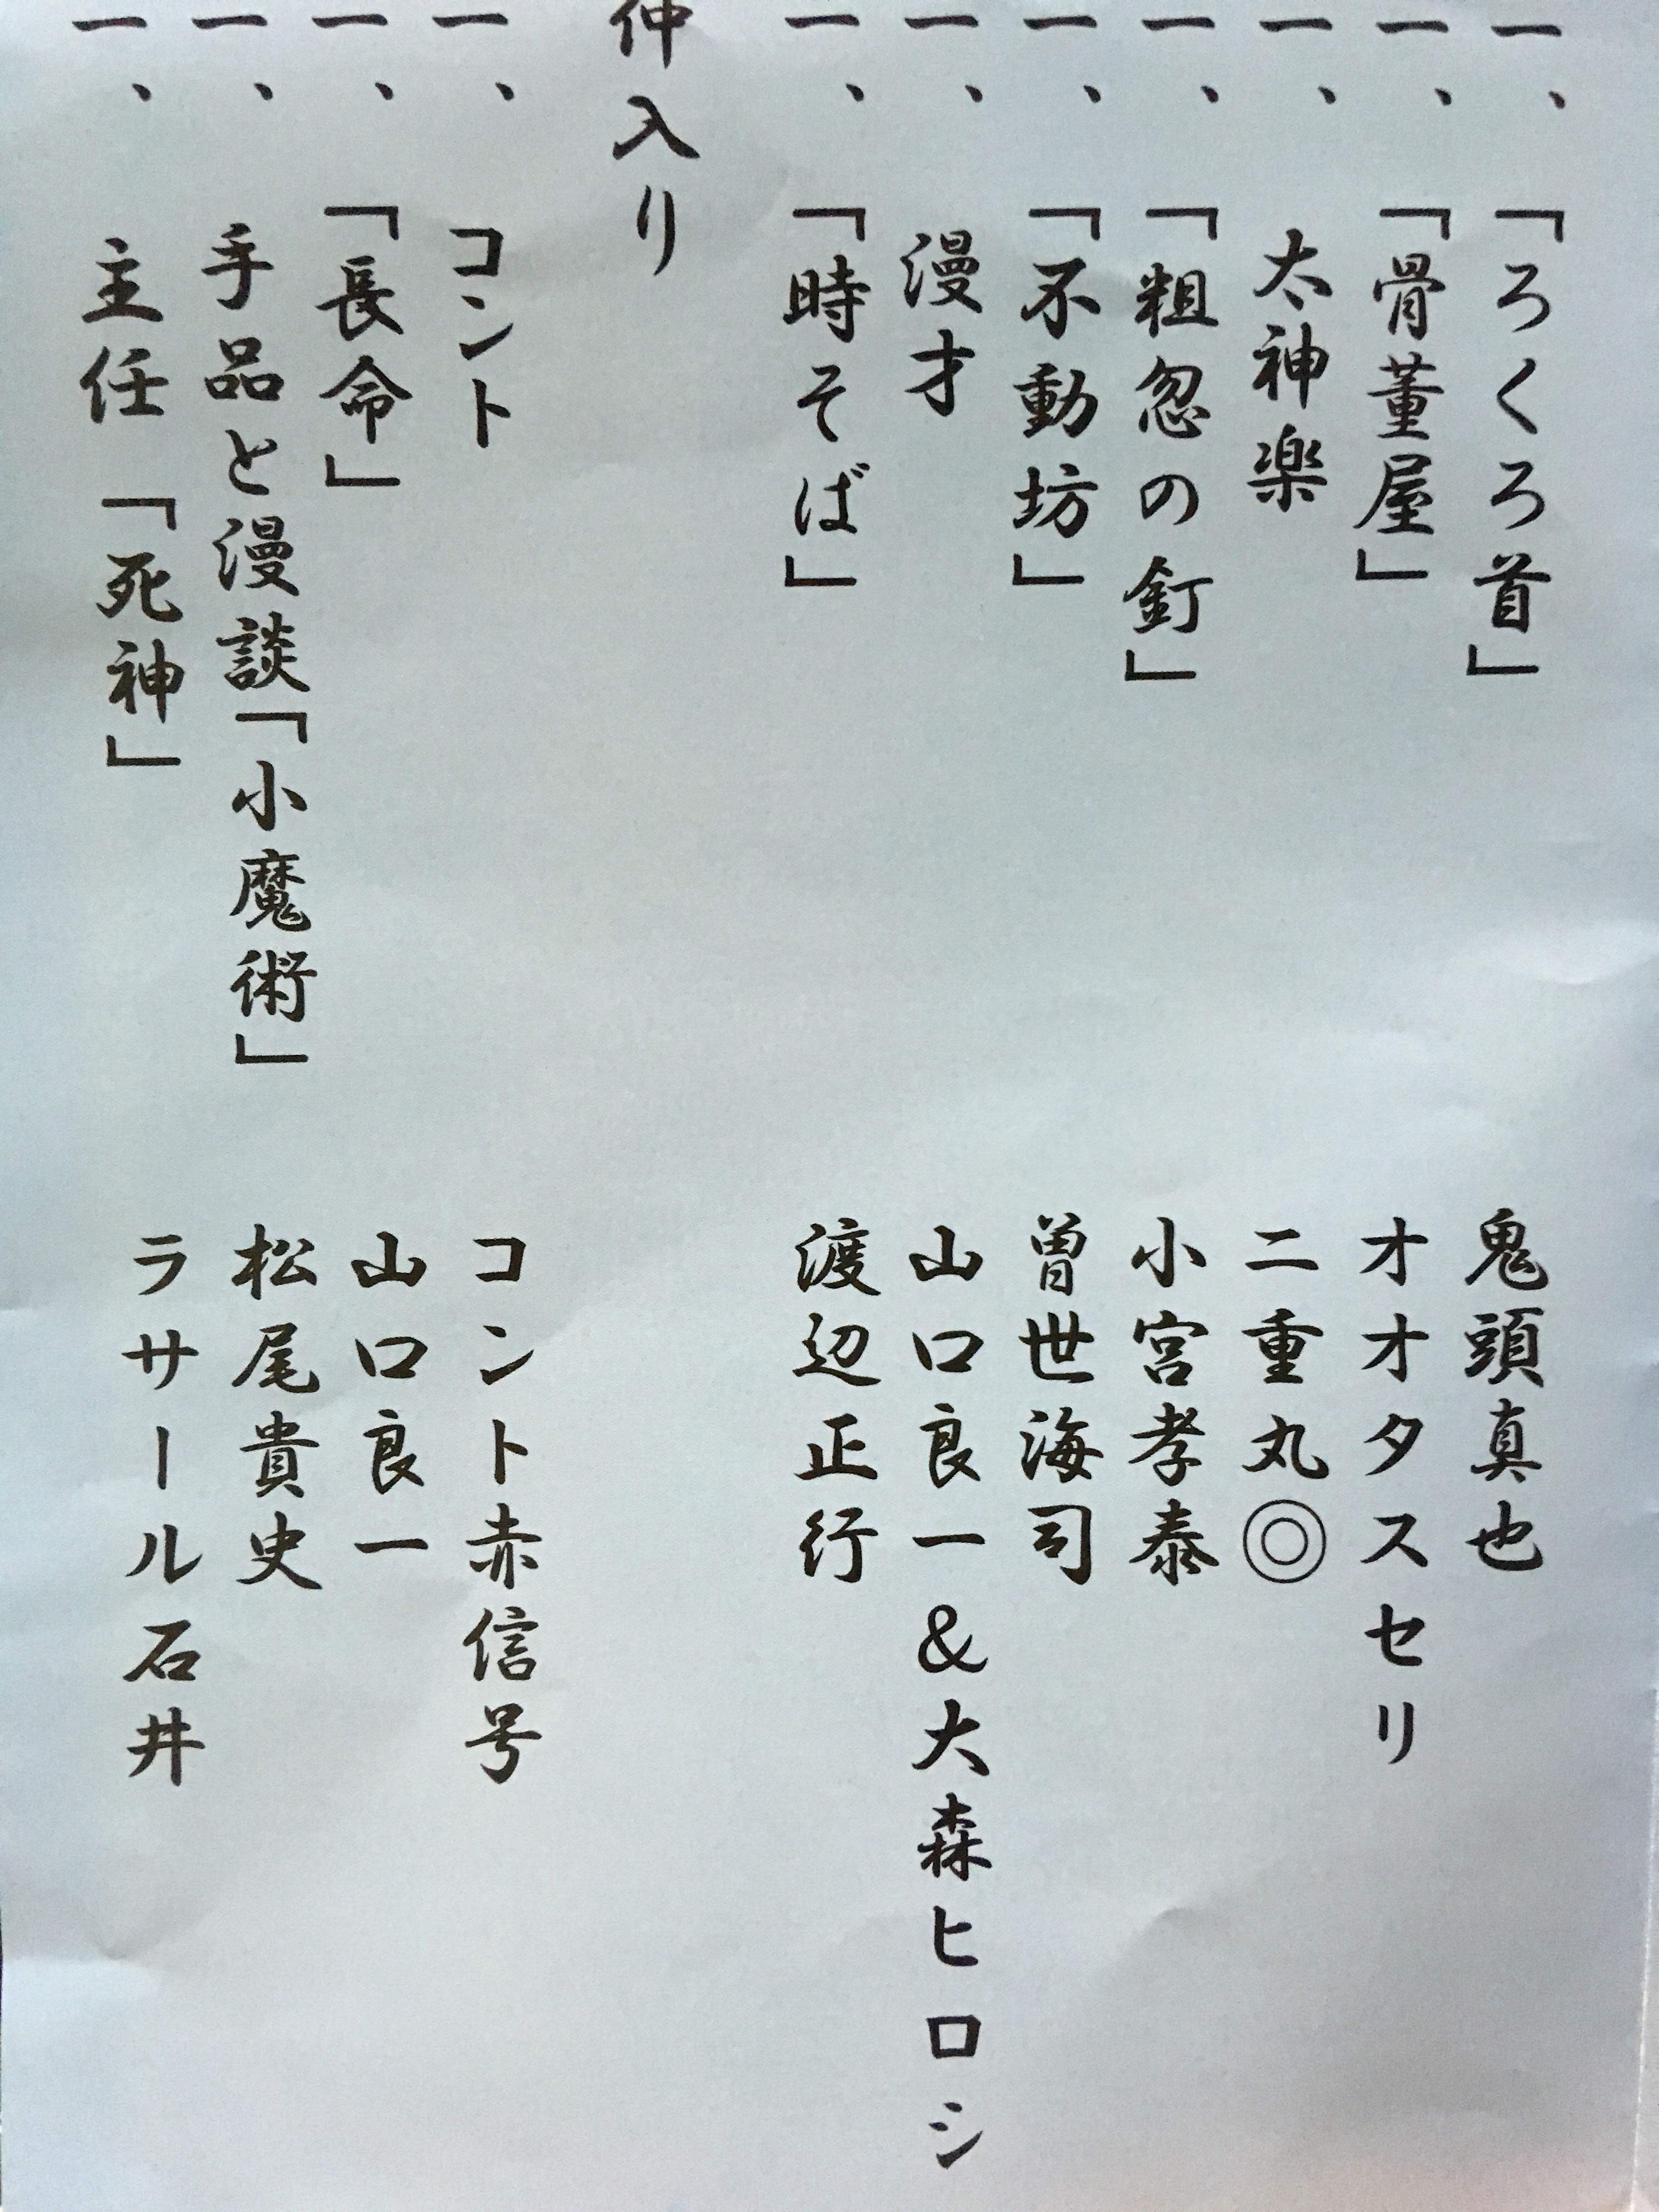 一、「ろくろ首」 鬼頭真也
一、「骨董屋」 オオタスセリ
一、太神楽 二重丸◎
一、「粗忽の釘」 小宮孝泰
一、「不動坊」 曽世海司
一、漫才 山口良一&大森ヒロシ
一、「時そば」 渡辺正行
仲入り
一、コント コント赤信号
一、「長命」 山口良一
一、手品と漫談「小魔術」 松尾貴史
一、主任「死神」 ラサール石井